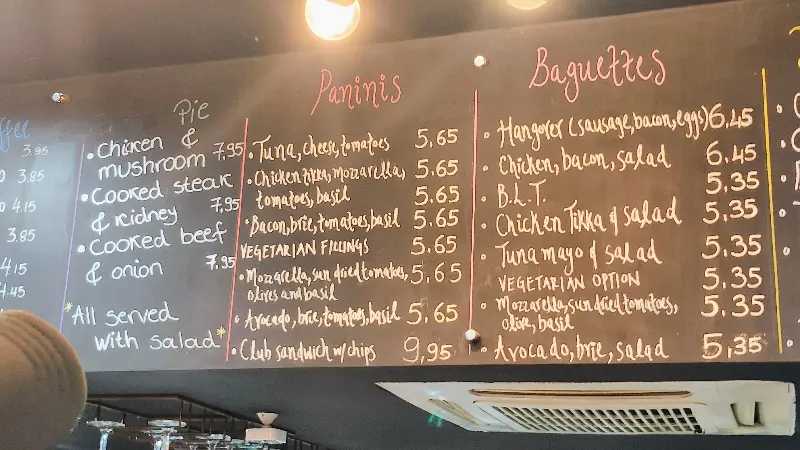 ffee
3.95
3.85
4.15
3.85
4.15
4.45
Pie
• Chicken &
mushroom 7,95
• Cooked steak
& kidney 7,95
• Cooked beef
& onion 7,95
*All served
with salad*
Paninis
• Tuna, cheese, tomatoes 5.65
• Chicken tikka, mozzarella, 5.65
tomatoes, basil 5.65
• Bacon, brie, tomatoes, basil 5.65
VEGETARIAN FILLINGS 5.65
• Mozzarella, sun dried tomatoes, 5.65
olives and basil
• Avocado, brie, tomatoes, basil 5.65
• Club sandwich w/chips 9,95
Baguettes
• Hangover (sausage, bacon, eggs) 6.45
• Chicken, bacon, salad 6.45
• B.L.T. 5.35
• Chicken Tikka & salad 5.35
• Tuna mayo & salad 5.35
VEGETARIAN OPTION 5.35
• Mozzarella, sun dried tomatoes, 5.35
olive, basil
• Avocado, brie, salad 5,35